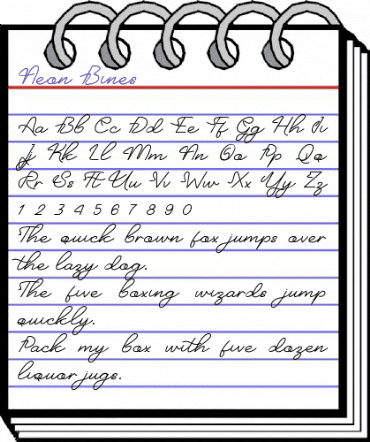 Neon Bines
Aa Bb Cc Dd Ee Ff Gg Hh Ii
Jj Kk Ll Mm Nn Oo Pp Qq
Rr Ss Tt Uu Vv Ww Xx Yy Zz
1 2 3 4 5 6 7 8 9 0
The quick brown fox jumps over
the lazy dog.
The five boxing wizards jump
quickly.
Pack my box with five dozen
liquor jugs.